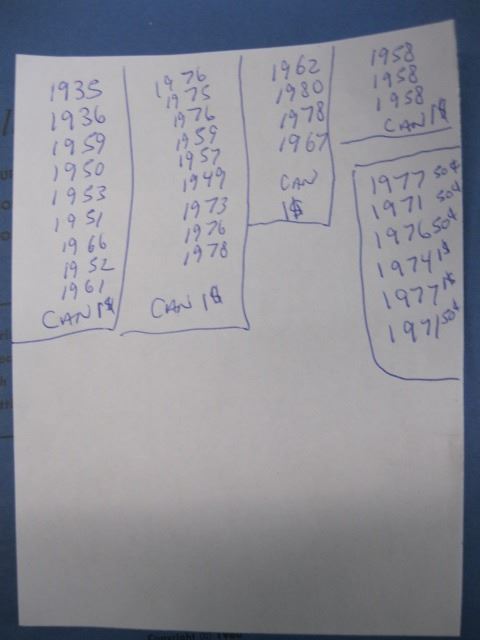 1935
1936
1959
1950
1953
1951
1966
1952
1961
CAN 1$
1976
1975
1976
1959
1957
1949
1973
1976
1978
CAN 1$
1962
1980
1978
1967
CAN
1$
1958
1958
1958
CAN 1$
1977 50¢
1971 50¢
1976 50¢
1974 1$
1977 1$
1971 50¢